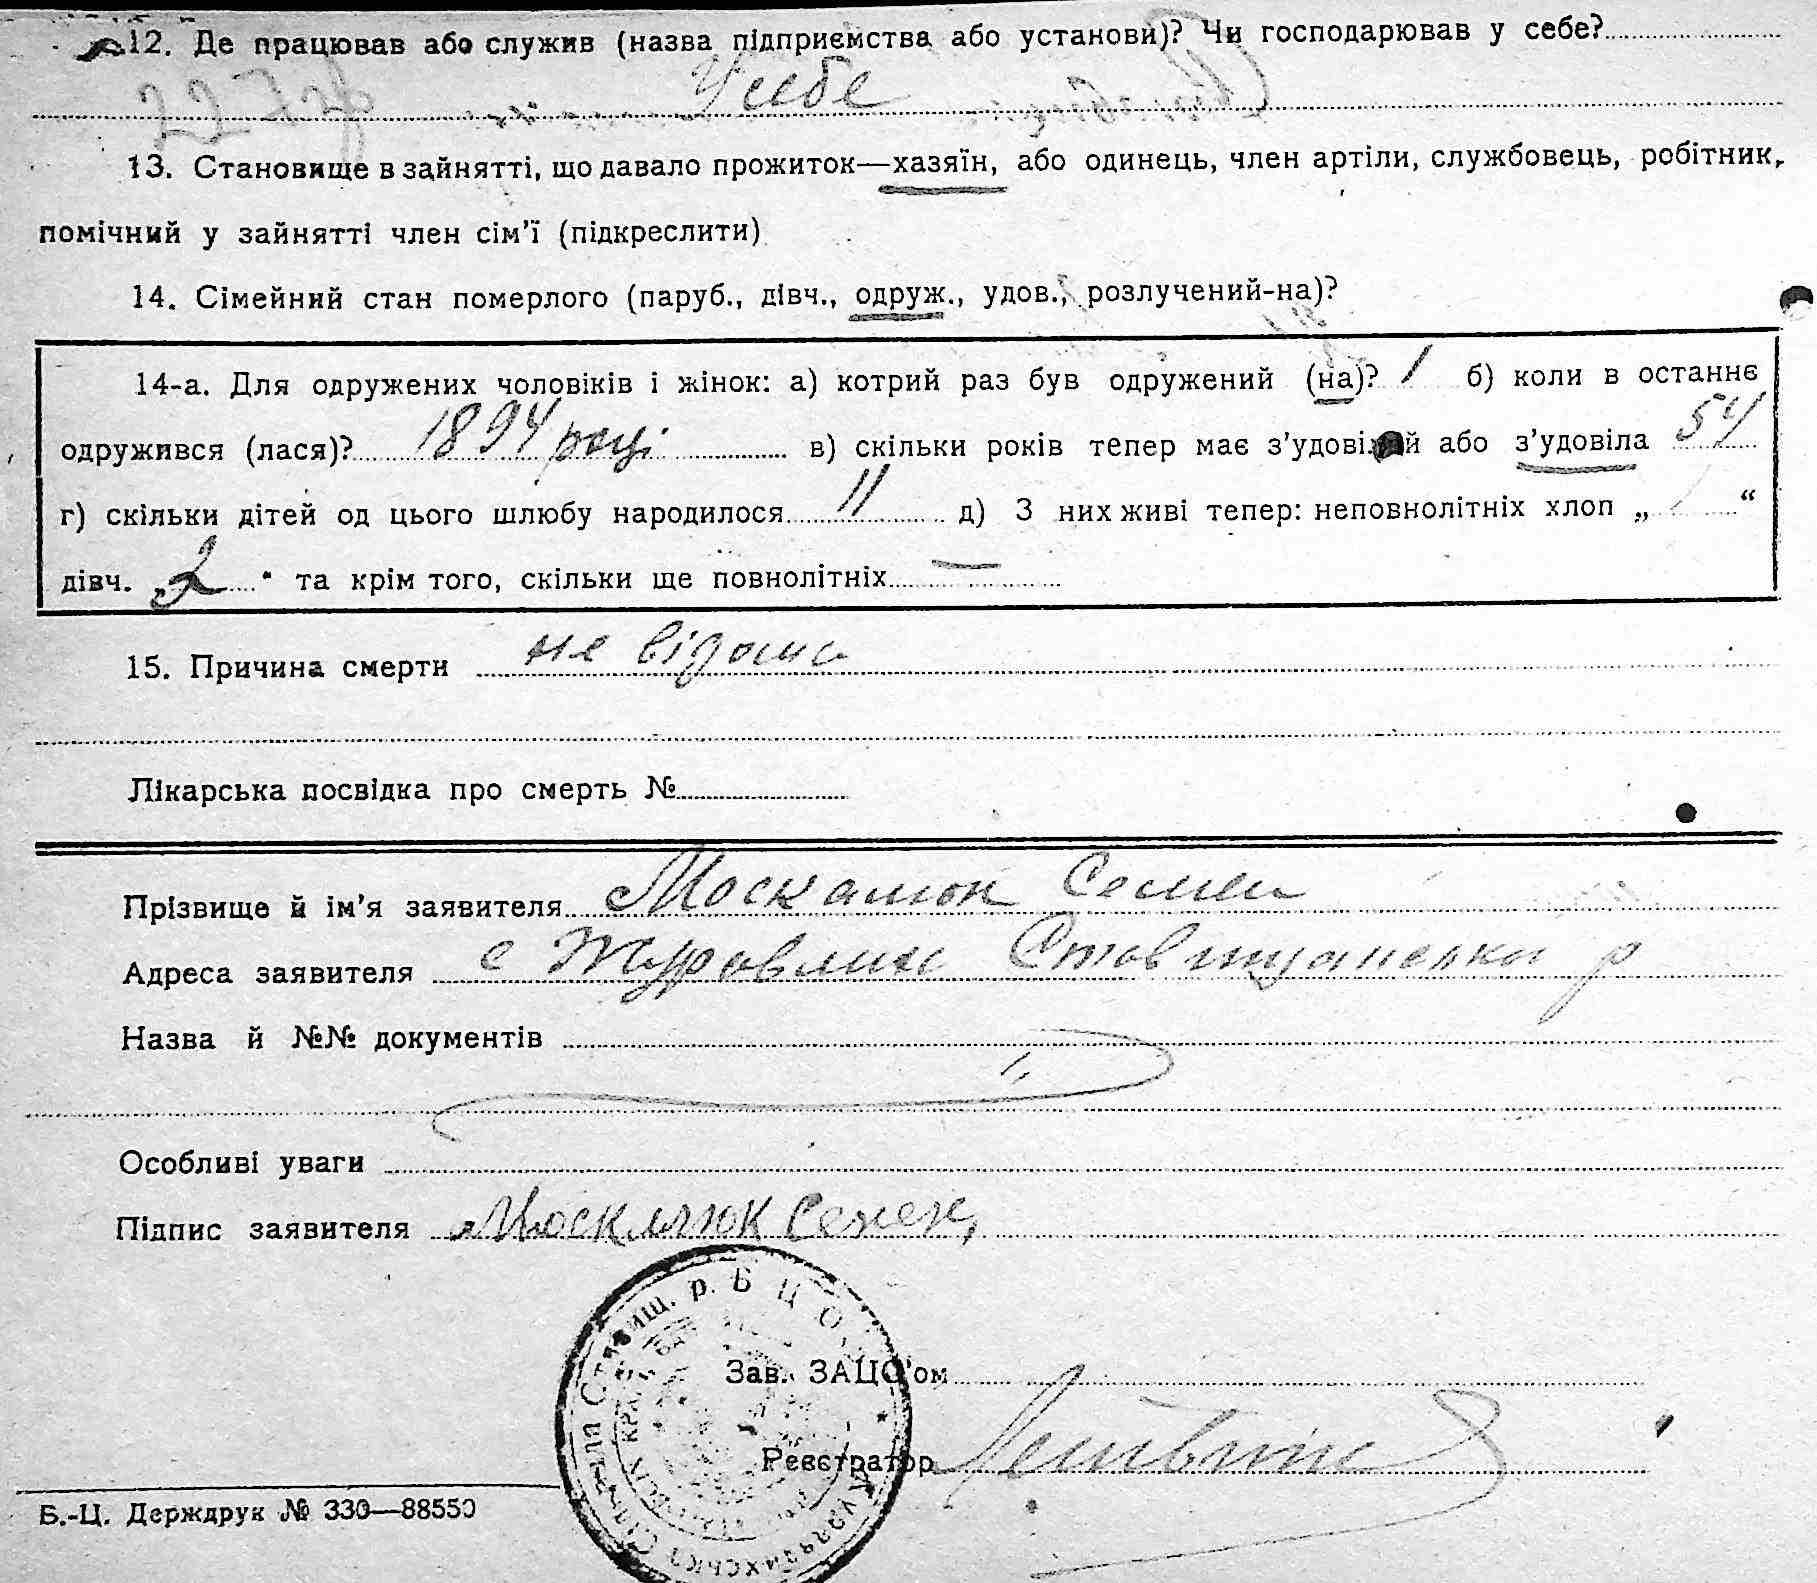 12. Де працював або служив (назва підприємства або установи)? Чи господарював у себе?
У себе
13. Становище в зайнятті, що давало прожиток—хазяїн, або одинець, член артіли, службовець, робітник,
помічний у зайнятті член сім'ї (підкреслити)
14. Сімейний стан померлого (паруб., дівч., одруж., удов., розлучений-на)?
14-а. Для одружених чоловіків і жінок: а) котрий раз був одружений (на)? 1 б) коли в останнє
одружився (лася)? 1894 році в) скільки років тепер має з'удовілий або з'удовіла 54
г) скільки дітей од цього шлюбу народилося 11 д) З них живі тепер: неповнолітніх хлоп „ 1 “
дівч. „2 “ та крім того, скільки ще повнолітніх —
15. Причина смерти не відома
Лікарська посвідка про смерть №
Прізвище й ім'я заявителя Москалюк Семен
Адреса заявителя с Журавлиха Ставищанська р
Назва й №№ документів
Особливі уваги
Підпис заявителя Москалюк Семен
Ставищ. р. Б Ц О
Зав. ЗАЦС'ом
Реєстратор
Б.-Ц. Держдрук № 330—88550